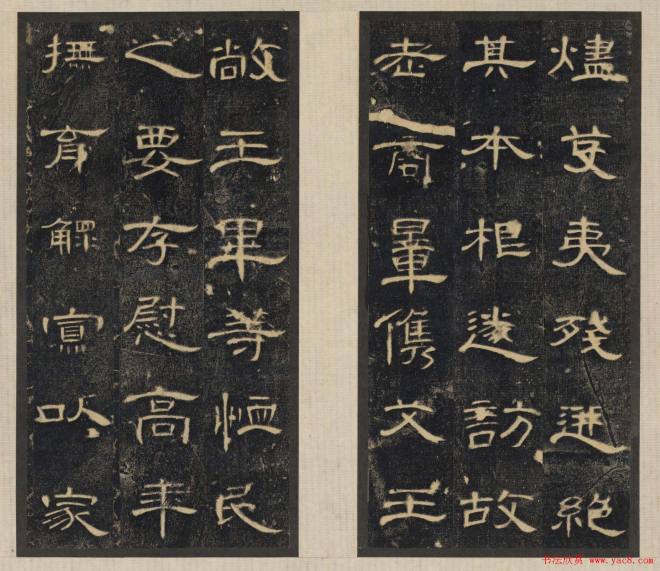 燼芟夷殘迸絕
其本根遂訪故
老商量儁艾王
敞王畢等恤民
之要存慰高年
撫育鰥寡以家
书法欣赏 www.yac8.com